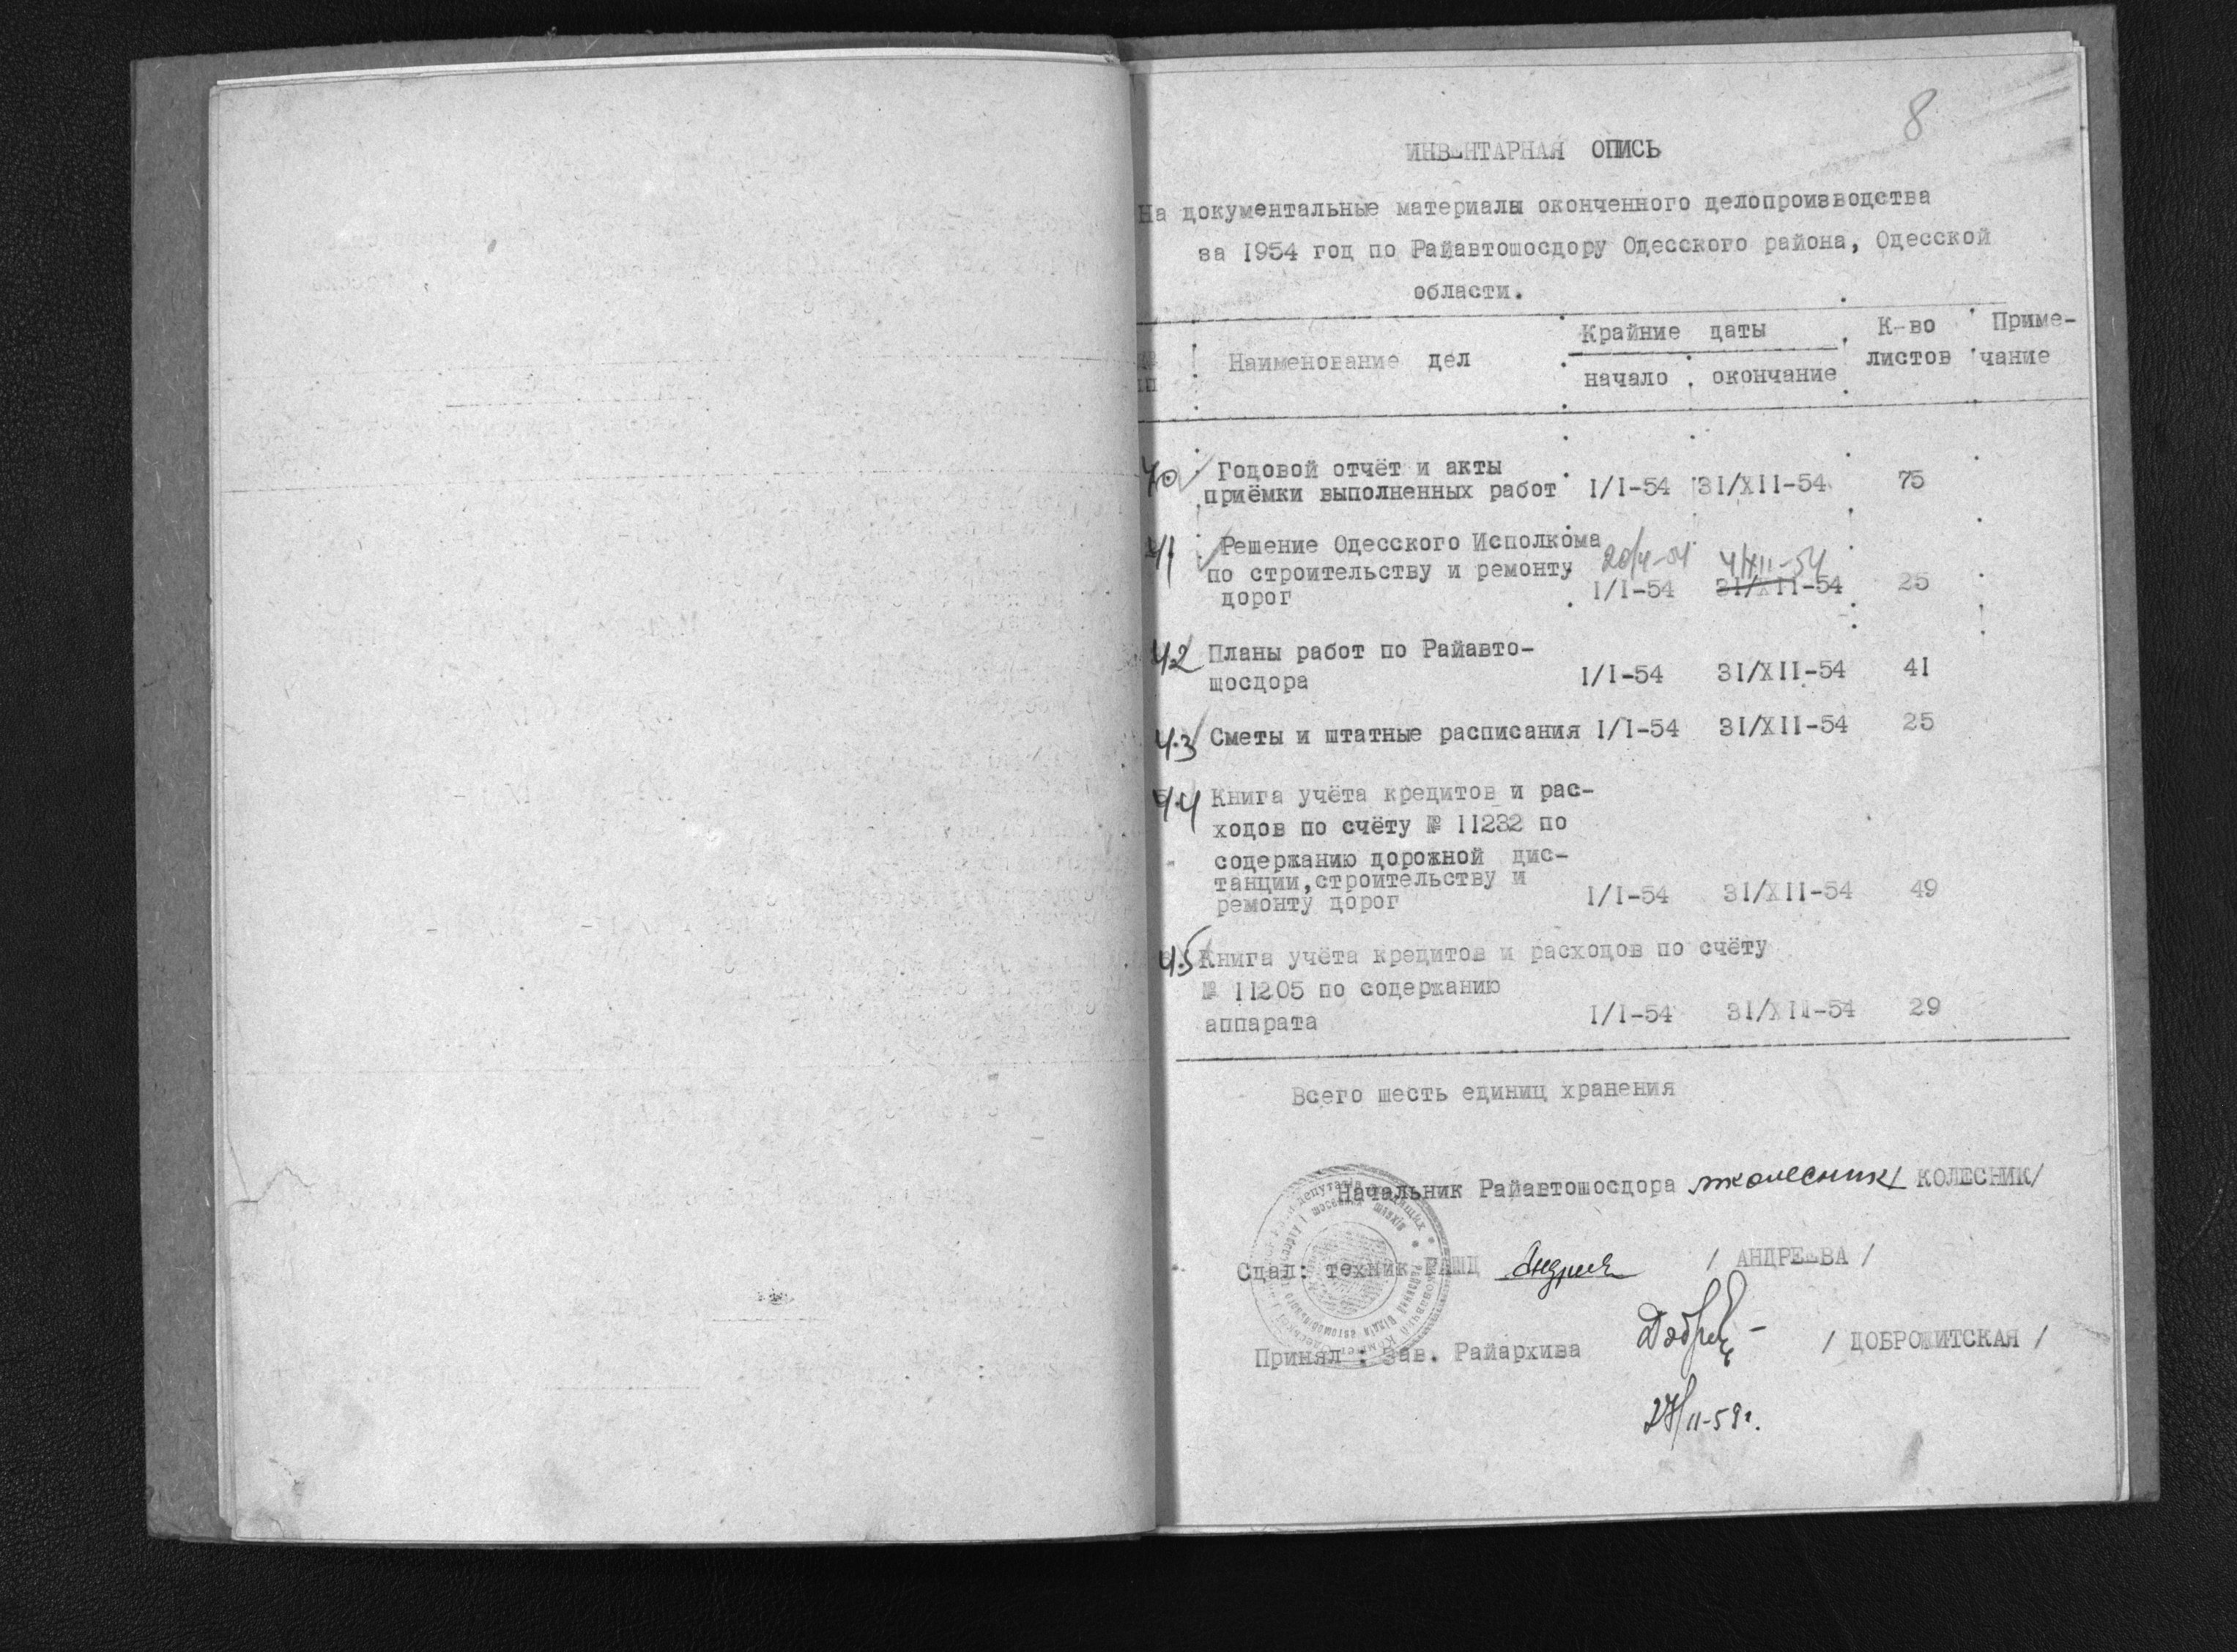 8
ИНВЕНТАРНАЯ ОПИСЬ
На документальные материалы оконченного делопроизводства
за 1954 год по Райавтошосдору Одесского района, Одесской
области.
№ Наименование дел Крайние даты К-во Приме-
пп начало окончание листов чание
40 Годовой отчёт и акты
приёмки выполненных работ 1/1-54 31/XII-54 75
41 Решение Одесского Исполкома
20/4-54 4/XII-54
по строительству и ремонту
дорог 1/1-54 31/XII-54 25
42 Планы работ по Райавто-
шосдора 1/1-54 31/XII-54 41
43 Сметы и штатные расписания 1/1-54 31/XII-54 25
44 Книга учёта кредитов и рас-
ходов по счёту № 11232 по
содержанию дорожной дис-
танции,строительству и
ремонту дорог 1/1-54 31/XII-54 49
45 Книга учёта кредитов и расходов по счёту
№ 11205 по содержанию
аппарата 1/1-54 31/XII-54 29
Всего шесть единиц хранения
Начальник Райавтошосдора /КОЛЕСНИК/
Сдал: техник РАШД / АНДРЕЕВА /
Принял : Зав. Райархива / ДОБРОЖИТСКАЯ /
27/II-59г.